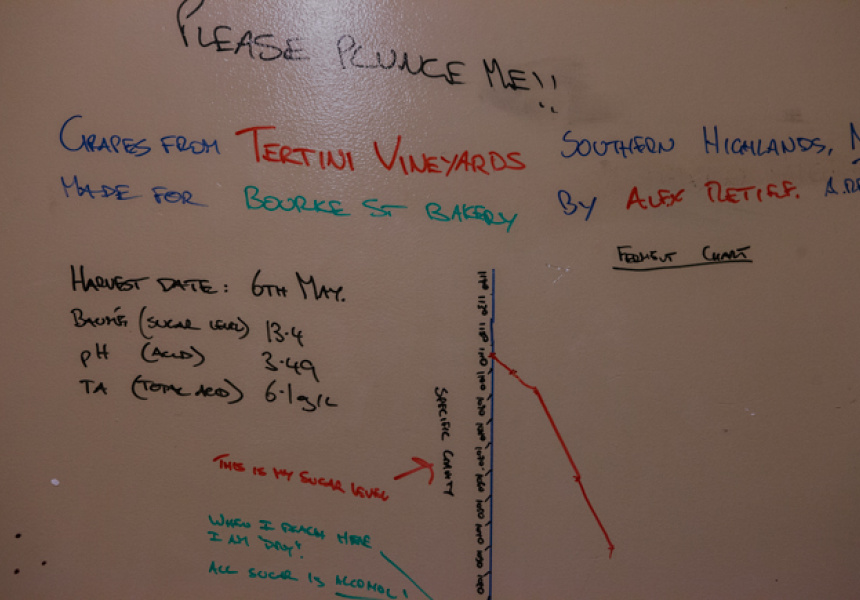 PLEASE PLUNGE ME!!
GRAPES FROM TERTINI VINEYARDS SOUTHERN HIGHLANDS,
MADE FOR BOURKE ST BAKERY BY ALEX RETIEF.
FERMENT CHART
HARVEST DATE: 6TH MAY.
BAUMÉ (SUGAR LEVEL) 13.4
pH (ACID) 3.49
TA (TOTAL ACID) 6.1g/L
SPECIFIC GRAVITY
THIS IS MY SUGAR LEVEL
WHEN I REACH HERE
I AM "DRY".
ALL SUGAR IS ALCOHOL!